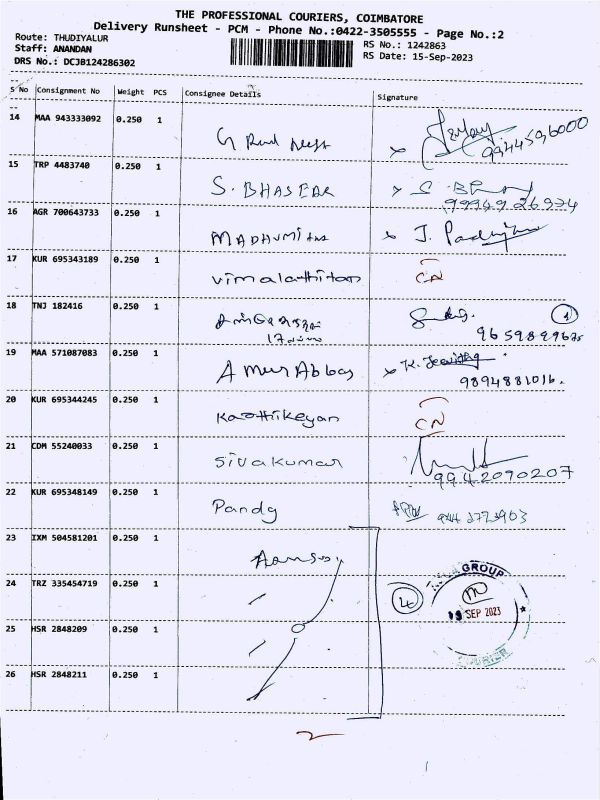 THE PROFESSIONAL COURIERS, COIMBATORE
Delivery Runsheet - PCM - Phone No.:0422-3505555 - Page No.:2
Route: THUDIYALUR
RS No.: 1242863
Staff: ANANDAN
RS Date: 15-Sep-2023
DRS No.: DCJB124286302
S No Consignment No Weight PCS Consignee Details Signature
14 MAA 943333092 0.250 1
9944596000
15 TRP 4483740 0.250 1 S. BHASKAR
16 AGR 700643733 0.250 1 MADHUMITHA
17 KUR 695343189 0.250 1 Vimalathitan CN
18 TNJ 182416 0.250 1 1
19 MAA 571087083 0.250 1 Ameer Abbas
9894881016.
20 KUR 695344245 0.250 1 Karthikeyan CN
21 CDM 55240033 0.250 1 Sivakumar
9942090207
22 KUR 695348149 0.250 1 Pandy
23 IXM 504581201 0.250 1
24 TRZ 335454719 0.250 1 4
25 HSR 2848209 0.250 1
26 HSR 2848211 0.250 1
GROUP
SEP 2023